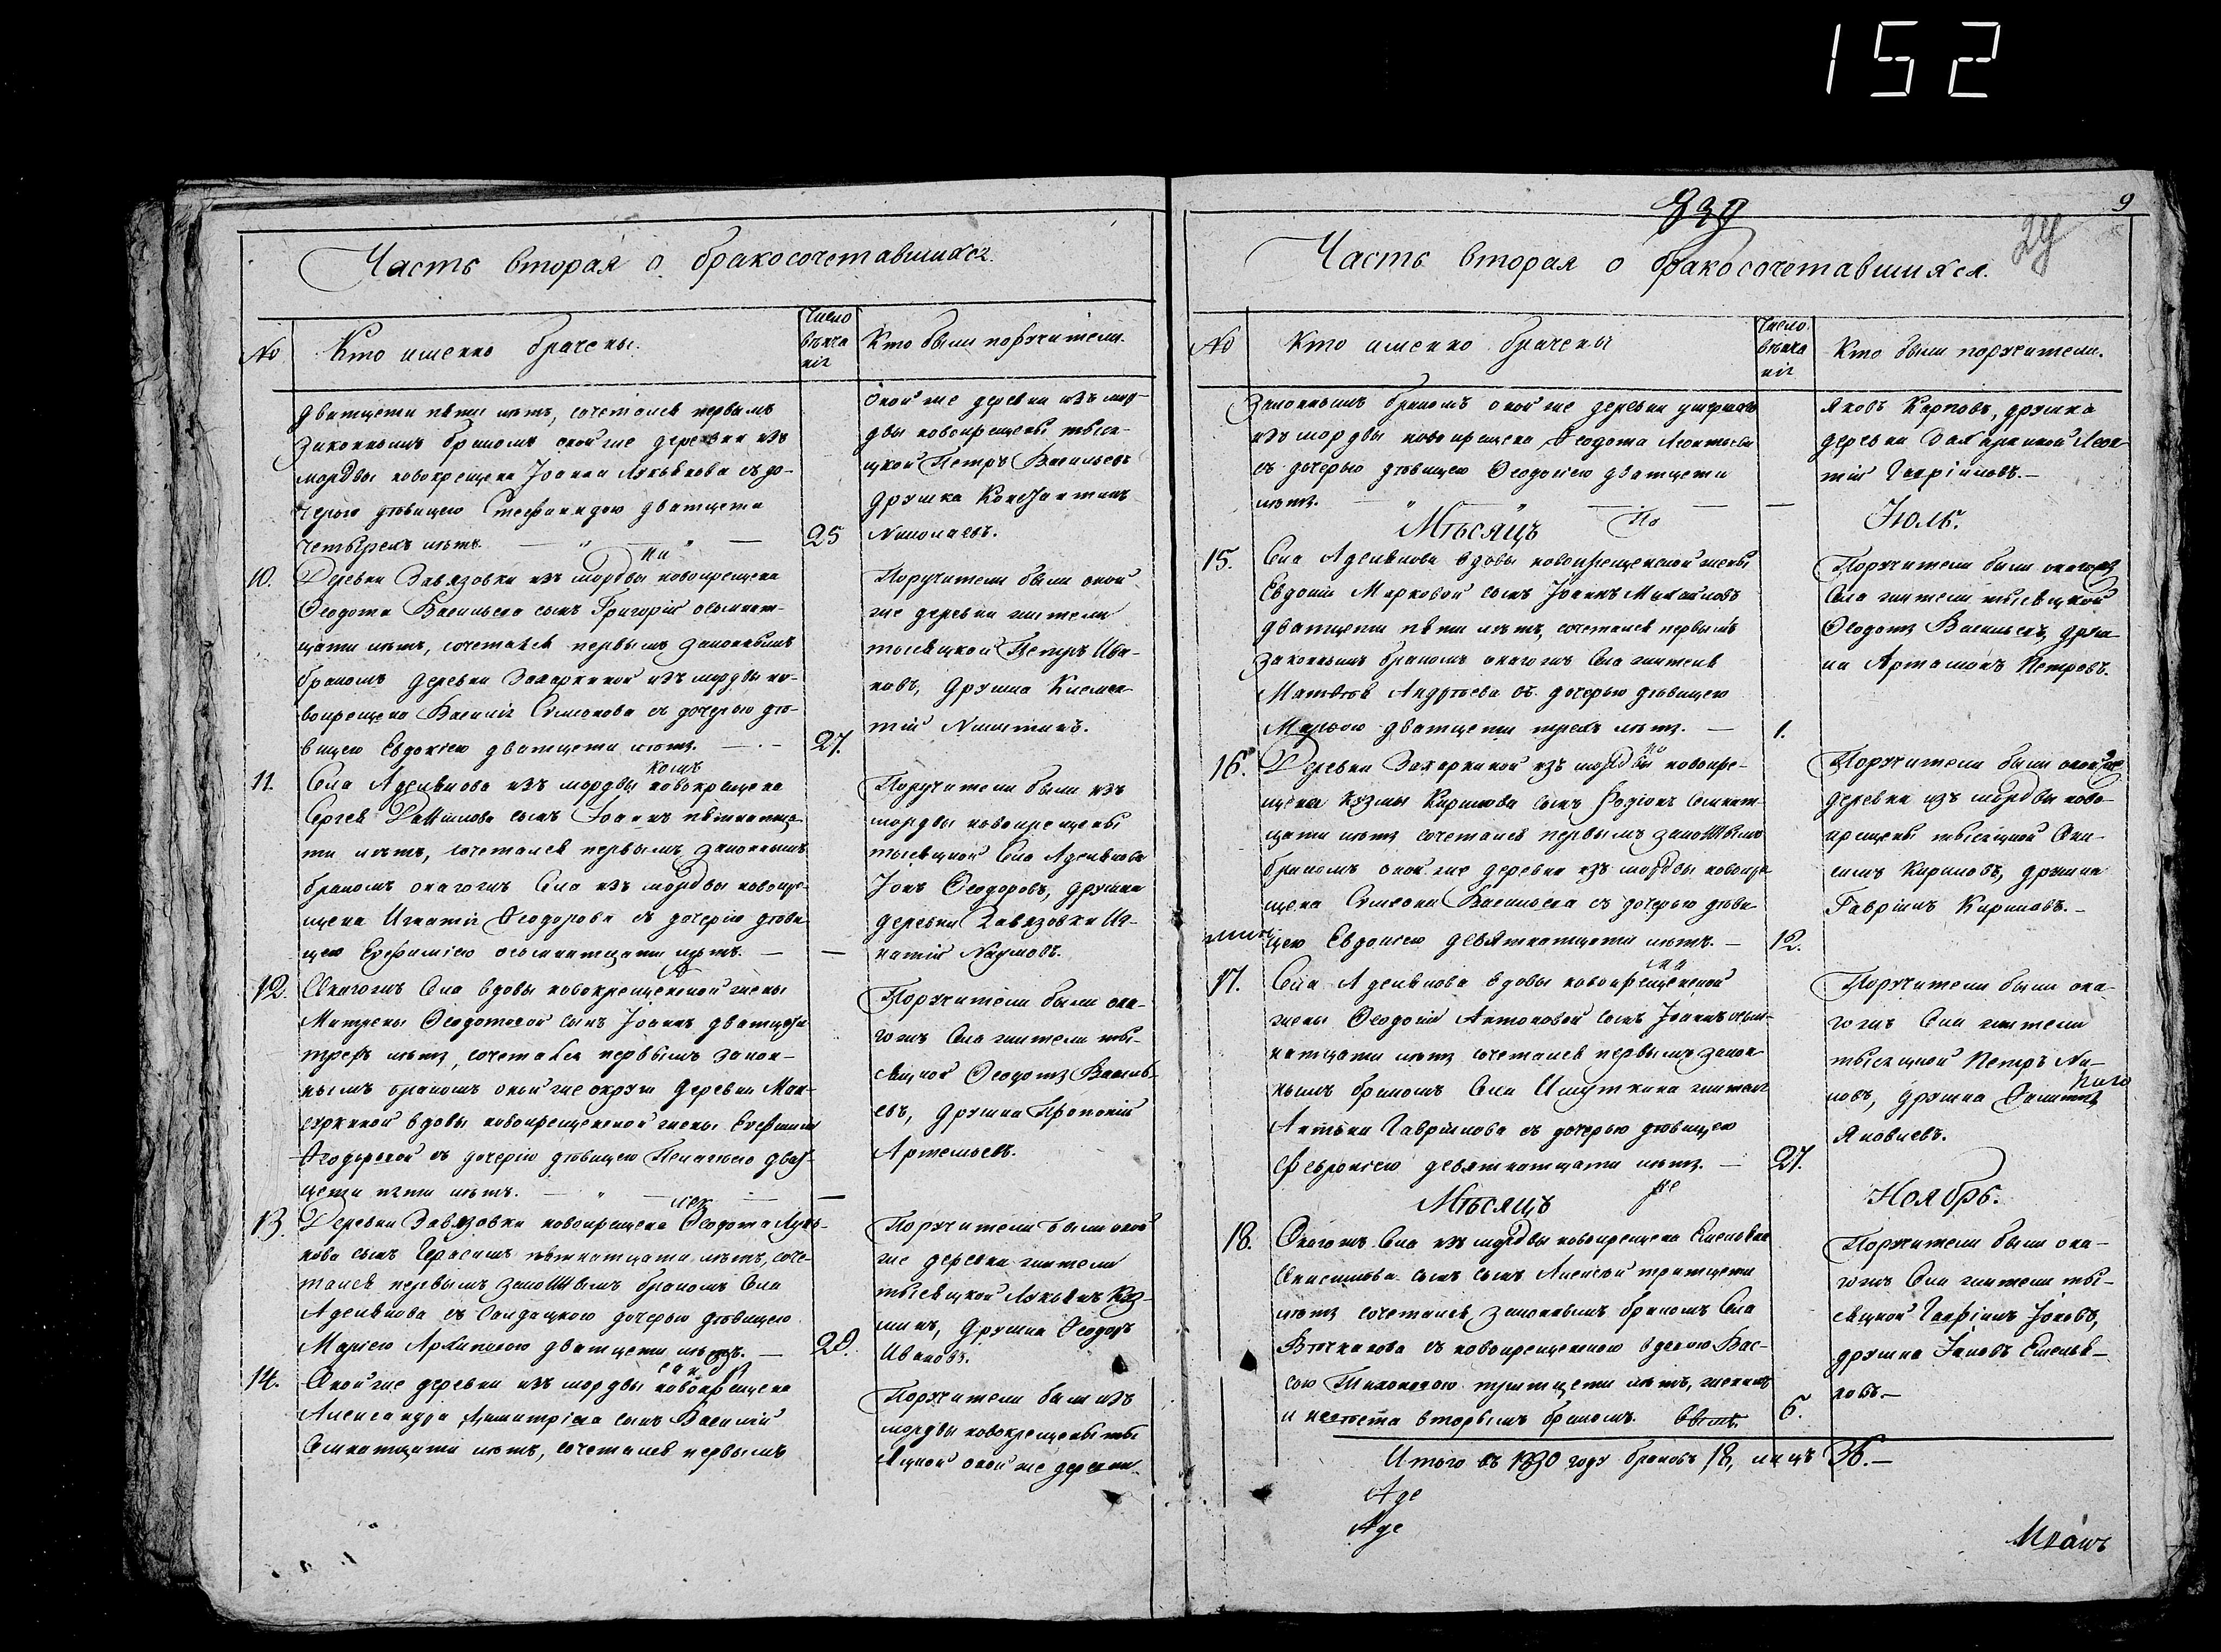 152
Часть вторая о бракосочетавшихся.
No
Кто именно брачены.
Число
венча
нія
Кто были поручители.
дватцети пяти летъ, сочетался первымъ
законнымъ бракомъ оной же деревни изъ
мордвы новокрещена Іоанна Лукьянова съ до-
черью девицею Степанидою дватцети
четырехъ летъ.
25
Оной же деревни изъ мор-
двы новокрещены тысе-
цкой Петръ Васильевъ
дружка Константинъ
Николаевъ.
10.
Деревни Завязовки изъ мордвы новокрещена
Ѳеодота Васильева сынъ Григорій осьмнат-
цати летъ, сочетался первымъ законнымъ
бракомъ деревни Захаркиной изъ мордвы но-
вокрещена Василія Симонова съ дочерью де-
вицею Евдокіею дватцети летъ.
27.
Поручители были оной
же деревни жители
тысяцкой Петръ Ива-
новъ, дружка Клемен-
тій Никитинъ.
11.
Села Аделякова изъ мордвы новокрещена
Сергея Данилова сынъ Іоаннъ пятнатца-
ти летъ, сочетался первымъ законнымъ
бракомъ онагожъ села изъ мордвы новокре-
щена Игнатія Ѳеодорова съ дочерью деви-
цею Евфиміею осьмнатцати летъ.
Поручители были изъ
мордвы новокрещены
тысяцкой села Аделякова
Іонъ Ѳеодоровъ, дружка
деревни Завязовки Иг-
натій Наумовъ.
12.
Онагожъ села вдовы новокрещенской жены
Матрены Ѳеодотовой сынъ Іоаннъ дватцети
трехъ летъ, сочетался первымъ закон-
нымъ бракомъ оной же округи деревни Мак-
вдовы новокрещенской жены Евфиміи
Ѳеодоровой съ дочерью девицею Пелагеею дват-
цети пяти летъ.
Поручители были она-
гожъ села жители ты-
сяцкой Ѳеодотъ Василь-
евъ, дружка Прокопій
Артемьевъ.
13.
Деревни Завязовки новокрещена Ѳеодота Лукья-
нова сынъ Герасимъ пятнатцати летъ, соче-
тался первымъ законнымъ бракомъ села
Аделякова съ салдацкою дочерью девицею
Маріею Архиповою дватцети летъ.
29.
Поручители были оной
же деревни жители
тысяцкой Лукьянъ Куз-
минъ, дружка Ѳеодоръ
Ивановъ.
14.
Оной же деревни изъ мордвы новокрещена
Александра Димитріева сынъ Василій
семнатцати летъ, сочетался первымъ
Поручители были изъ
мордвы новокрещены ты
сяцкой оной же деревни
9
Часть вторая о бракосочетавшихся.
No
Кто именно брачены
Число
венча
нія
Кто были поручители.
законнымъ бракомъ оной же деревни умершаго
изъ мордвы новокрещена Ѳеодота Леонтьева
съ дочерью девицею Ѳеодосіею дватцети
летъ.
Яковъ Карповъ, дружка
деревни Захаркиной Леон-
тій Гавріиловъ.
Месяцъ
Іюль.
15.
Села Аделякова вдовы новокрещенской жены
Евдокіи Марковой сынъ Іоаннъ Михайловъ
дватцети пяти летъ, сочетался первымъ
законнымъ бракомъ онагожъ села жителя
Матвея Андреева съ дочерью девицею
дватцети трехъ летъ.
1.
Поручители были онагожъ
села жители тысяцкой
Ѳеодотъ Васильевъ, друж-
ка Артамонъ Петровъ.
16.
Деревни Захаркиной изъ мордвы новокре-
щена Кузмы Кирилова сынъ Родіонъ семнат-
цати летъ сочетался первымъ законнымъ
бракомъ оной же деревни изъ мордвы новокре
щена Симеона Васильева съ дочерью деви-
цею Евдокіею девятнатцати летъ.
12.
Поручители были оной же
деревни изъ мордвы ново-
крещены тысяцкой
Кириловъ, дружка
Гавріилъ Кириловъ.
17.
Села Аделякова вдовы новокрещенской
жены Ѳеодосіи Антоновой сынъ Іоаннъ осьм-
натцати летъ сочетался первымъ закон-
нымъ бракомъ села Ишуткина жителя
Гавріилова съ дочерью девицею
Февроніею девятнатцати летъ.
27.
Поручители были она-
гожъ села жители
тысяцкой Петръ
дружка
Яковлевъ.
Месяцъ
Ноябрь.
18.
Онагожъ села изъ мордвы новокрещена Емельяна
Анисимова сынъ Алексей тритцети
летъ сочетался законнымъ бракомъ села
съ новокрещенскою вдовою Вас-
сою Тихоновою тритцети летъ, женихъ
и невеста вторымъ бракомъ.
6.
Поручители были она-
гожъ села жители ты-
сяцкой Гавріилъ
дружка Емелья-
новъ.
Итого въ 1830 году браковъ 18, лицъ 36.
Аде
Аде